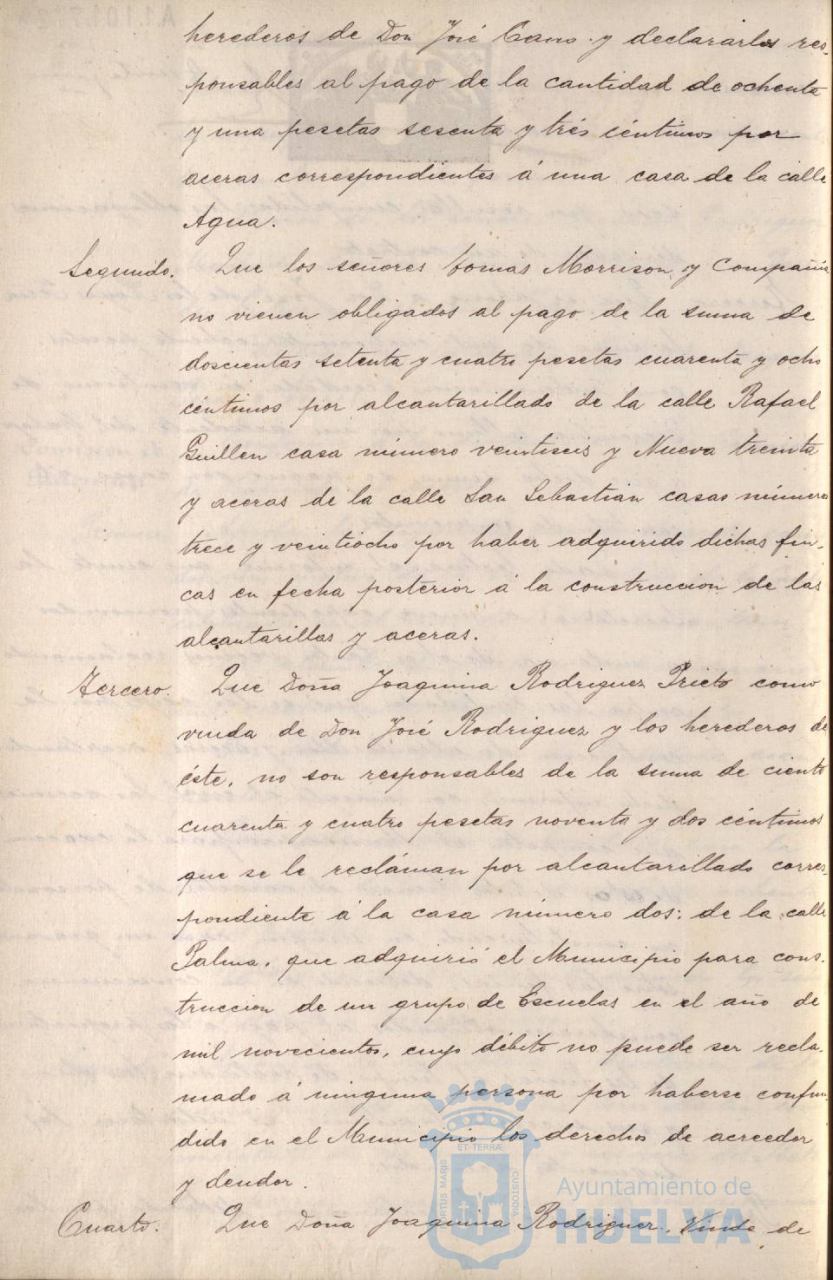 herederos de Don José Cano y declararles res-
ponsables al pago de la cantidad de ochenta
y una pesetas sesenta y tres céntimos por
aceras correspondientes á una casa de la calle
Agua.
Segundo. Que los señores Tomás Morrison y Compañia
no vienen obligados al pago de la suma de
doscientas setenta y cuatro pesetas cuarenta y ocho
céntimos por alcantarillado de la calle Rafael
Guillen casa número veintiseis y Nueva treinta
y aceras de la calle San Sebastian casas número
trece y veintiocho por haber adquirido dichas fin-
cas en fecha posterior á la construccion de las
alcantarillas y aceras.
Tercero. Que Doña Joaquina Rodriguez Prieto como
viuda de Don José Rodriguez y los herederos de
éste, no son responsables de la suma de ciento
cuarenta y cuatro pesetas noventa y dos céntimos
que se le recláman por alcantarillado corres-
pondiente á la casa número dos, de la calle
Palma, que adquirió el Municipio para cons-
truccion de un grupo de Escuelas en el año de
mil novecientos, cuyo débito no puede ser recla-
mado á ninguna persona por haberse confun-
dido en el Municipio los derechos de acreedor
y deudor.
Cuarto. Que Doña Joaquina Rodriguez, Viuda de
PORTUS MARIS ET TERRÆ CUSTODIA
Ayuntamiento de
HUELVA